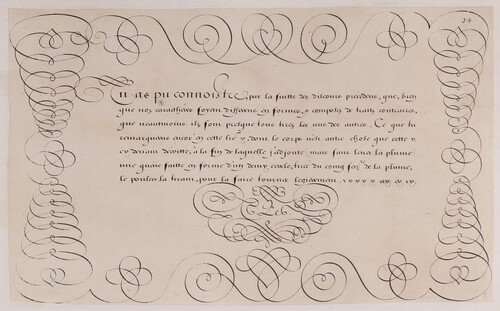 24
Tu as pu connoistre, par la suitte des discours precedens, que, bien
que noz caractheres soyent differens en formes, & composez de traits contraires,
que neantmoins ilz sont presque tous tirez les uns des autres. Ce que tu
remarqueras encor en cette lié y, dont le corps n'est autre chose que cette v,
cy devant descritte, a la fin de laquelle j'adjouté, mais sans lever la plume
une queue faitte en forme d'un demy cercle, tirée du coing de la plume,
le poulce la tirant, pour la faire tourner legerement. y y y y y